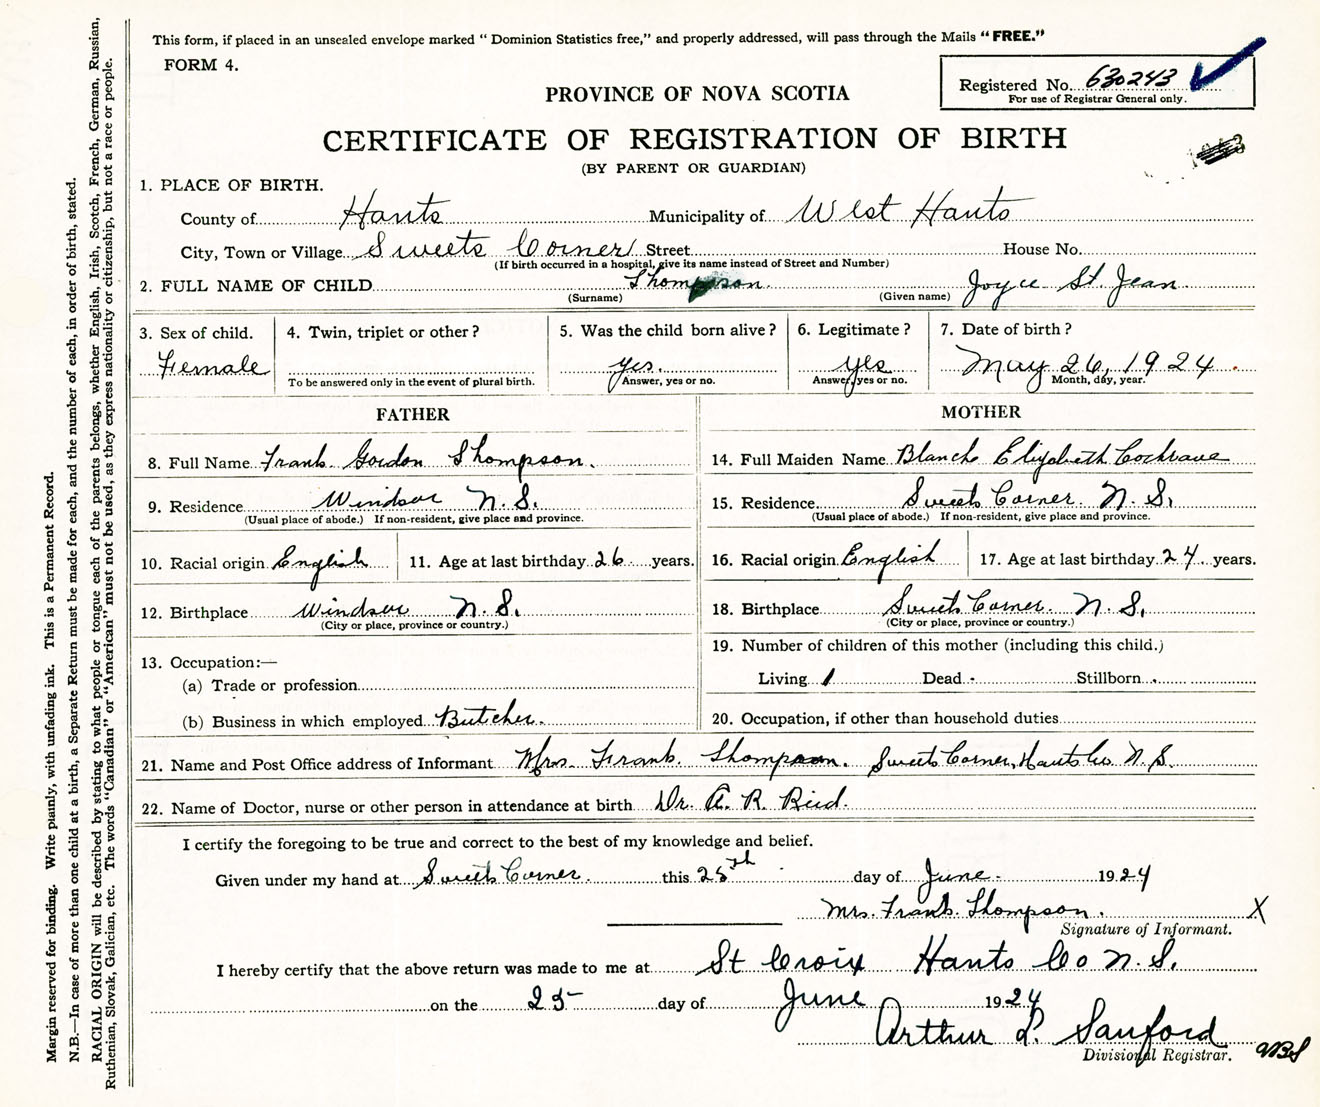 This form, if placed in an unsealed envelope marked " Dominion Statistics free," and properly addressed, will pass through the Mails "FREE."
FORM 4.
Registered No. 630243
For use of Registrar General only.
PROVINCE OF NOVA SCOTIA
CERTIFICATE OF REGISTRATION OF BIRTH
(BY PARENT OR GUARDIAN)
1. PLACE OF BIRTH.
County of Hants Municipality of West Hants
City, Town or Village Sweets Corner Street House No.
(If birth occurred in a hospital, give its name instead of Street and Number)
2. FULL NAME OF CHILD Thompson Joyce St. Jean
(Surname) (Given name)
3. Sex of child. 4. Twin, triplet or other? 5. Was the child born alive? 6. Legitimate? 7. Date of birth?
Female yes. yes May 26, 1924
To be answered only in the event of plural birth. Answer, yes or no. Answer, yes or no. Month, day, year.
FATHER MOTHER
8. Full Name Frank Gordon Thompson. 14. Full Maiden Name Blanch Elizabeth Cochrane
9. Residence Windsor N.S. 15. Residence Sweets Corner N.S.
(Usual place of abode.) If non-resident, give place and province. (Usual place of abode.) If non-resident, give place and province.
10. Racial origin English 11. Age at last birthday 26 years. 16. Racial origin English 17. Age at last birthday 24 years.
12. Birthplace Windsor N.S. 18. Birthplace Sweets Corner. N.S.
(City or place, province or country.) (City or place, province or country.)
13. Occupation:— 19. Number of children of this mother (including this child.)
(a) Trade or profession Living 1 Dead - Stillborn .
(b) Business in which employed Butcher. 20. Occupation, if other than household duties
21. Name and Post Office address of Informant Mrs. Frank Thompson. Sweets Corner, Hants Co N.S.
22. Name of Doctor, nurse or other person in attendance at birth Dr. A. R. Reid.
I certify the foregoing to be true and correct to the best of my knowledge and belief.
Given under my hand at Sweets Corner. this 25th day of June. 1924
Mrs. Frank Thompson. X
Signature of Informant.
I hereby certify that the above return was made to me at St Croix Hants Co N.S.
on the 25 day of June 1924
Arthur L. Sanford
Divisional Registrar.
Margin reserved for binding. Write plainly, with unfading ink. This is a Permanent Record.
N.B.—In case of more than one child at a birth, a Separate Return must be made for each, and the number of each, in order of birth, stated.
RACIAL ORIGIN will be described by stating to what people or tongue each of the parents belongs, whether English, Irish, Scotch, French, German, Russian,
Ruthenian, Slovak, Galician, etc. The words "Canadian" or "American" must not be used, as they express nationality or citizenship, but not a race or people.